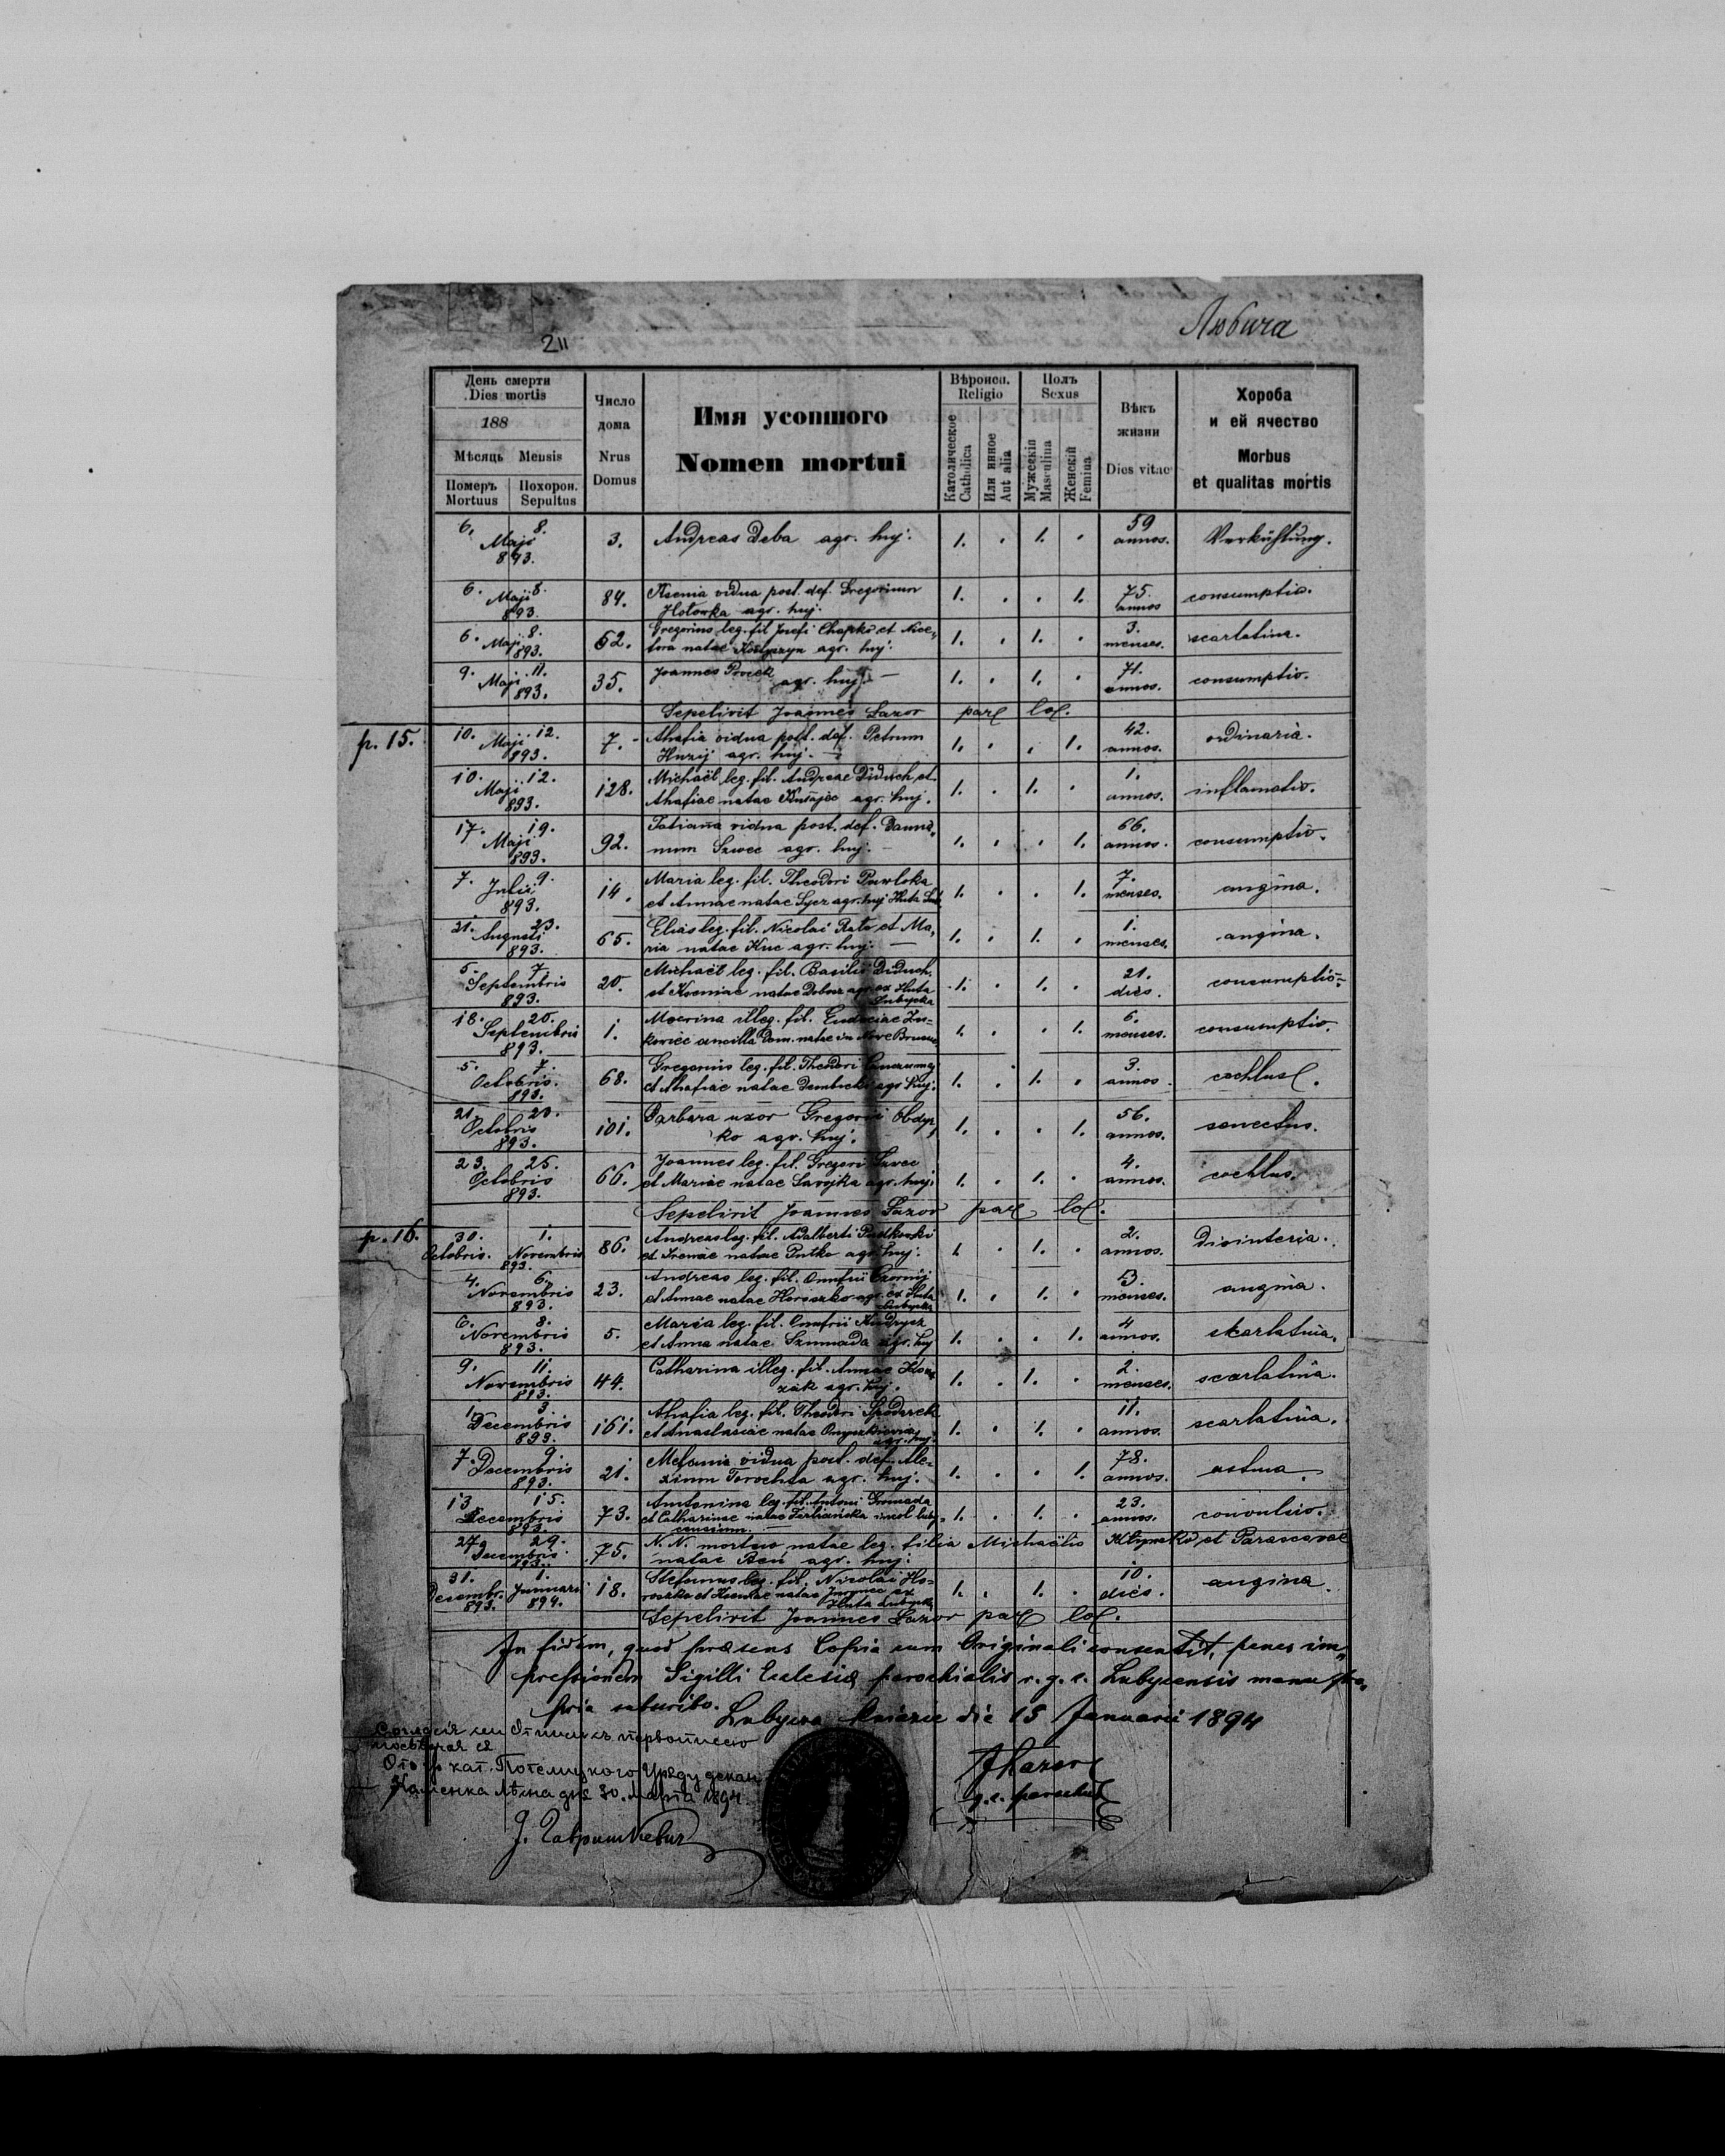 Любича
211
День смерти
Dies mortis
188
Мѣсяць Mensis
Померъ Похорон.
Mortuus Sepultus
Число
дома
Nrus
Domus
Имя усопшого
Nomen mortui
Вѣроисп.
Religio
Католическое
Catholica
Или инное
Aut alia
Полъ
Sexus
Мужескій
Masculina
Женскій
Femina
Вѣкъ
жизни
Dies vitae
Хороба
и ей ячество
Morbus
et qualitas mortis
6. 8. Maji 893. 3. Andreas Deba agr. huj. 1. . 1. . 59 annos. Verkühlung.
6. 8. Maji 893. 84. Ksenia vidua post. def. Gregorium 1. . . 1. 75. annos consumptio.
Hołowka agr. huj.
6. 8. Maji 893. 62. Gregorius leg. fil Josefi Chapko et Nice, 1. . 1. . 3. menses. scarlatina.
fora natae agr. huj.
9. 11. Maji 893. 35. Joannes 1. . 1. . 71. annos. consumptio.
agr. huj. —
Sepelivit Joannes Lazor par loc.
p. 15. 10. 12. Maji 893. 7. Ahafia vidua post. def. Petrum 1. . . 1. 42. annos. ordinaria.
Huzij agr. huj. —
10. 12. Maji 893. 128. Michaël leg. fil. Andreae Diduch et 1. . 1. . 1. annos. inflamatio.
Ahafiae natae agr. huj.
17. 19. Maji 893. 92. Tatiana vidua post. def. 1. . . 1. 66. annos. consumptio.
num Szwec agr. huj. —
7. 9. Julii 893. 14. Maria leg. fil. Theodori Pawloka 1. . . 1. 7. menses. angina.
et Annae natae agr. huj Huta
21. 23. Augusti 893. 65. Elias leg. fil. Nicolai Rata et Ma, 1. . 1. . 1. menses. angina.
ria natae Kuc agr. huj. —
5. 7. Septembris 893. 20. Michaël leg. fil. Basilii Diduch, 1. . 1. . 21. dies. consumptio
et Kseniae natae agr. ex Huta
Lubycka
18. 20. Septembris 893. 1. Macrina illeg. fil. Eudociae 1. . . 1. 6. menses. consumptio.
ancilla Dom. natae in
5. 7. Octobris. 893. 68. Gregorius leg. fil. Theodori 1. . 1. . 3. annos. cochlus.
et Ahafiae natae agr huj.
21. 23. Octobris 893. 101. Barbara uxor Gregorii 1. . . 1. 56. annos. senectus.
ko agr. huj.
23. 25. Octobris 893. 66. Joannes leg. fil. Gregori Szwec 1. . 1. . 4. annos. cochlus.
et Mariae natae Savojka agr. huj.
Sepelivit Joannes Lazor par loc.
p. 16. 30. Octobris. 1. Novembris 893. 86. Andreas leg. fil. Adalberti 1. . 1. . 2. annos. Disinteria.
et Irenae natae Putko agr. huj.
4. 6. Novembris 893. 23. Andreas leg. fil. Onufrii 1. . 1. . 3. menses. angina.
et Annae natae Horoszko agr. ex Huta
Lubycka
6. 8. Novembris 893. 5. Maria leg. fil. Onufrii 1. . . 1. 4 annos. skarlatina.
et Anna natae Szumada agr. huj
9. 11. Novembris 893. 44. Catharina illeg. fil. Annae 1. . 1. . 2. menses. scarlatina.
zak agr. huj.
1. 3. Decembris 893. 161. Ahafia leg. fil. Theodori 1. . 1. . 11. annos. scarlatina.
et Anastasiae natae agr. huj.
7. 9. Decembris 893. 21. Melania vidua post. def. Ale- 1. . . 1. 78. annos. astma.
xium Torochta agr. huj.
13. 15. Decembris 893. 73. Antonina leg. fil. Antoni Gromada 1. . 1. . 23. annos. convulsio.
et Catharinae natae
27. 29. Decembris 893. 75. N. N. mortuo natae leg. filia Michaëlis et Parascevae
natae agr. huj.
31. Decembr. 893. 1. Januari 894. 18. Stefanus leg. fil. Nicolai Ho- 1. . 1. . 10. dies. angina.
roszko et Kseniae natae ex
Huta Lubycka
Sepelivit Joannes Lazor par loc.
In fidem, quod praesens Copia cum Originali consentit, penes im,
pressionem Sigilli Eclesiae parochialis r. g. c. Lubycensis manu pro,
pria subscribo. Lubycza Kniazie die 15 Januarii 1894
JLazor
g. c. parochus
Каменка дня 30. Марта 1894.